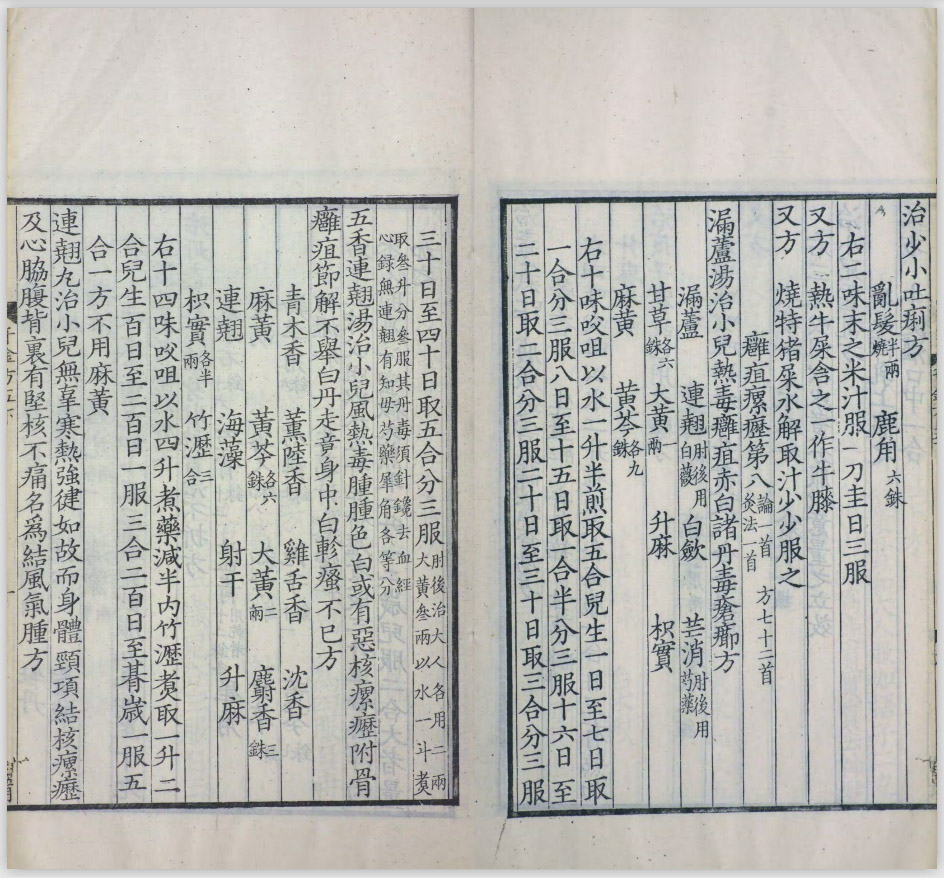 治少小吐痢方
亂髮半兩燒 鹿角六銖
右二味末之米汁服一刀圭日三服
又方 熱牛屎含之一作牛膝
又方 燒特猪屎水解取汁少少服之
癰疽瘰癧第八論一首 方七十二首 灸法一首
漏蘆湯治小兒熱毒癰疽赤白諸丹毒瘡癤方
漏蘆 連翹肘後用白薇 白歛 芒消肘後用芍藥
甘草各六銖 大黃一兩 升麻 枳實
麻黃 黃芩各九銖
右十味㕮咀以水一升半煎取五合兒生一日至七日取
一合分三服八日至十五日取一合半分三服十六日至
二十日取二合分三服二十日至三十日取三合分三服
三十日至四十日取五合分三服肘後治大人各用二兩大黃叁兩以水一斗煑
取叁升分叁服其丹毒須針鑱去血經心録無連翹有知母芍藥犀角各等分
五香連翹湯治小兒風熱毒腫腫色白或有惡核瘰癧附骨
癰疽節解不舉白丹走竟身中白軫瘙不已方
青木香 薰陸香 雞舌香 沈香
麻黃 黃芩各六銖 大黃二兩 麝香三銖
連翹 海藻 射干 升麻
枳實各半兩 竹瀝三合
右十四味㕮咀以水四升煮藥減半内竹瀝煑取一升二
合兒生百日至二百日一服三合二百日至朞歳一服五
合一方不用麻黃
連翹丸治小兒無辜寒熱強健如故而身體頸項結核瘰癧
及心脇腹背裏有堅核不痛名爲結風氣腫方